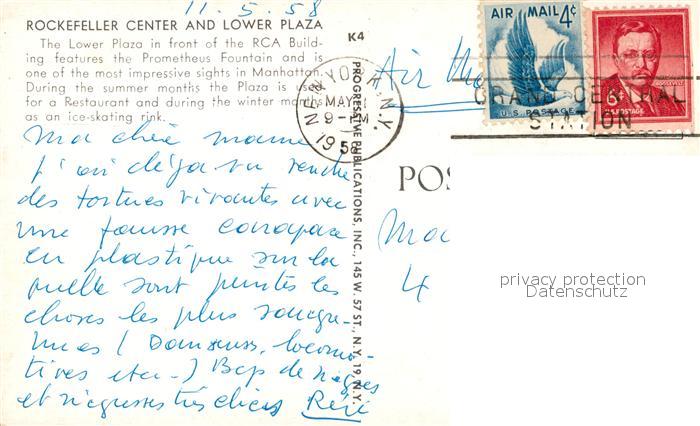 11.5.58
ROCKEFELLER CENTER AND LOWER PLAZA
The Lower Plaza in front of the RCA Build-
ing features the Prometheus Fountain and is
one of the most impressive sights in Manhattan.
During the summer months the Plaza is used
for a Restaurant and during the winter months
as an ice-skating rink.
K4
PROGRESSIVE PUBLICATIONS, INC., 145 W. 57 ST., N.Y. 19, N.Y.
Ma chère maman
j'ai déjà vu vendre
des tortues vivantes avec
une fausse carapace
en plastique sur la
quelle sont peintes les
choses les plus saugre-
nues (Danseuses, locomo-
tives etc.) Bcp de nègres
et négresses très chics René
NEW YORK, N.Y.
MAY 11
9-PM
1958
AIR MAIL 4¢
U.S. POSTAGE
6¢
U.S. POSTAGE
GRAND CENTRAL
STATION
Air Ma
POS
Ma
4
privacy protection
Datenschutz